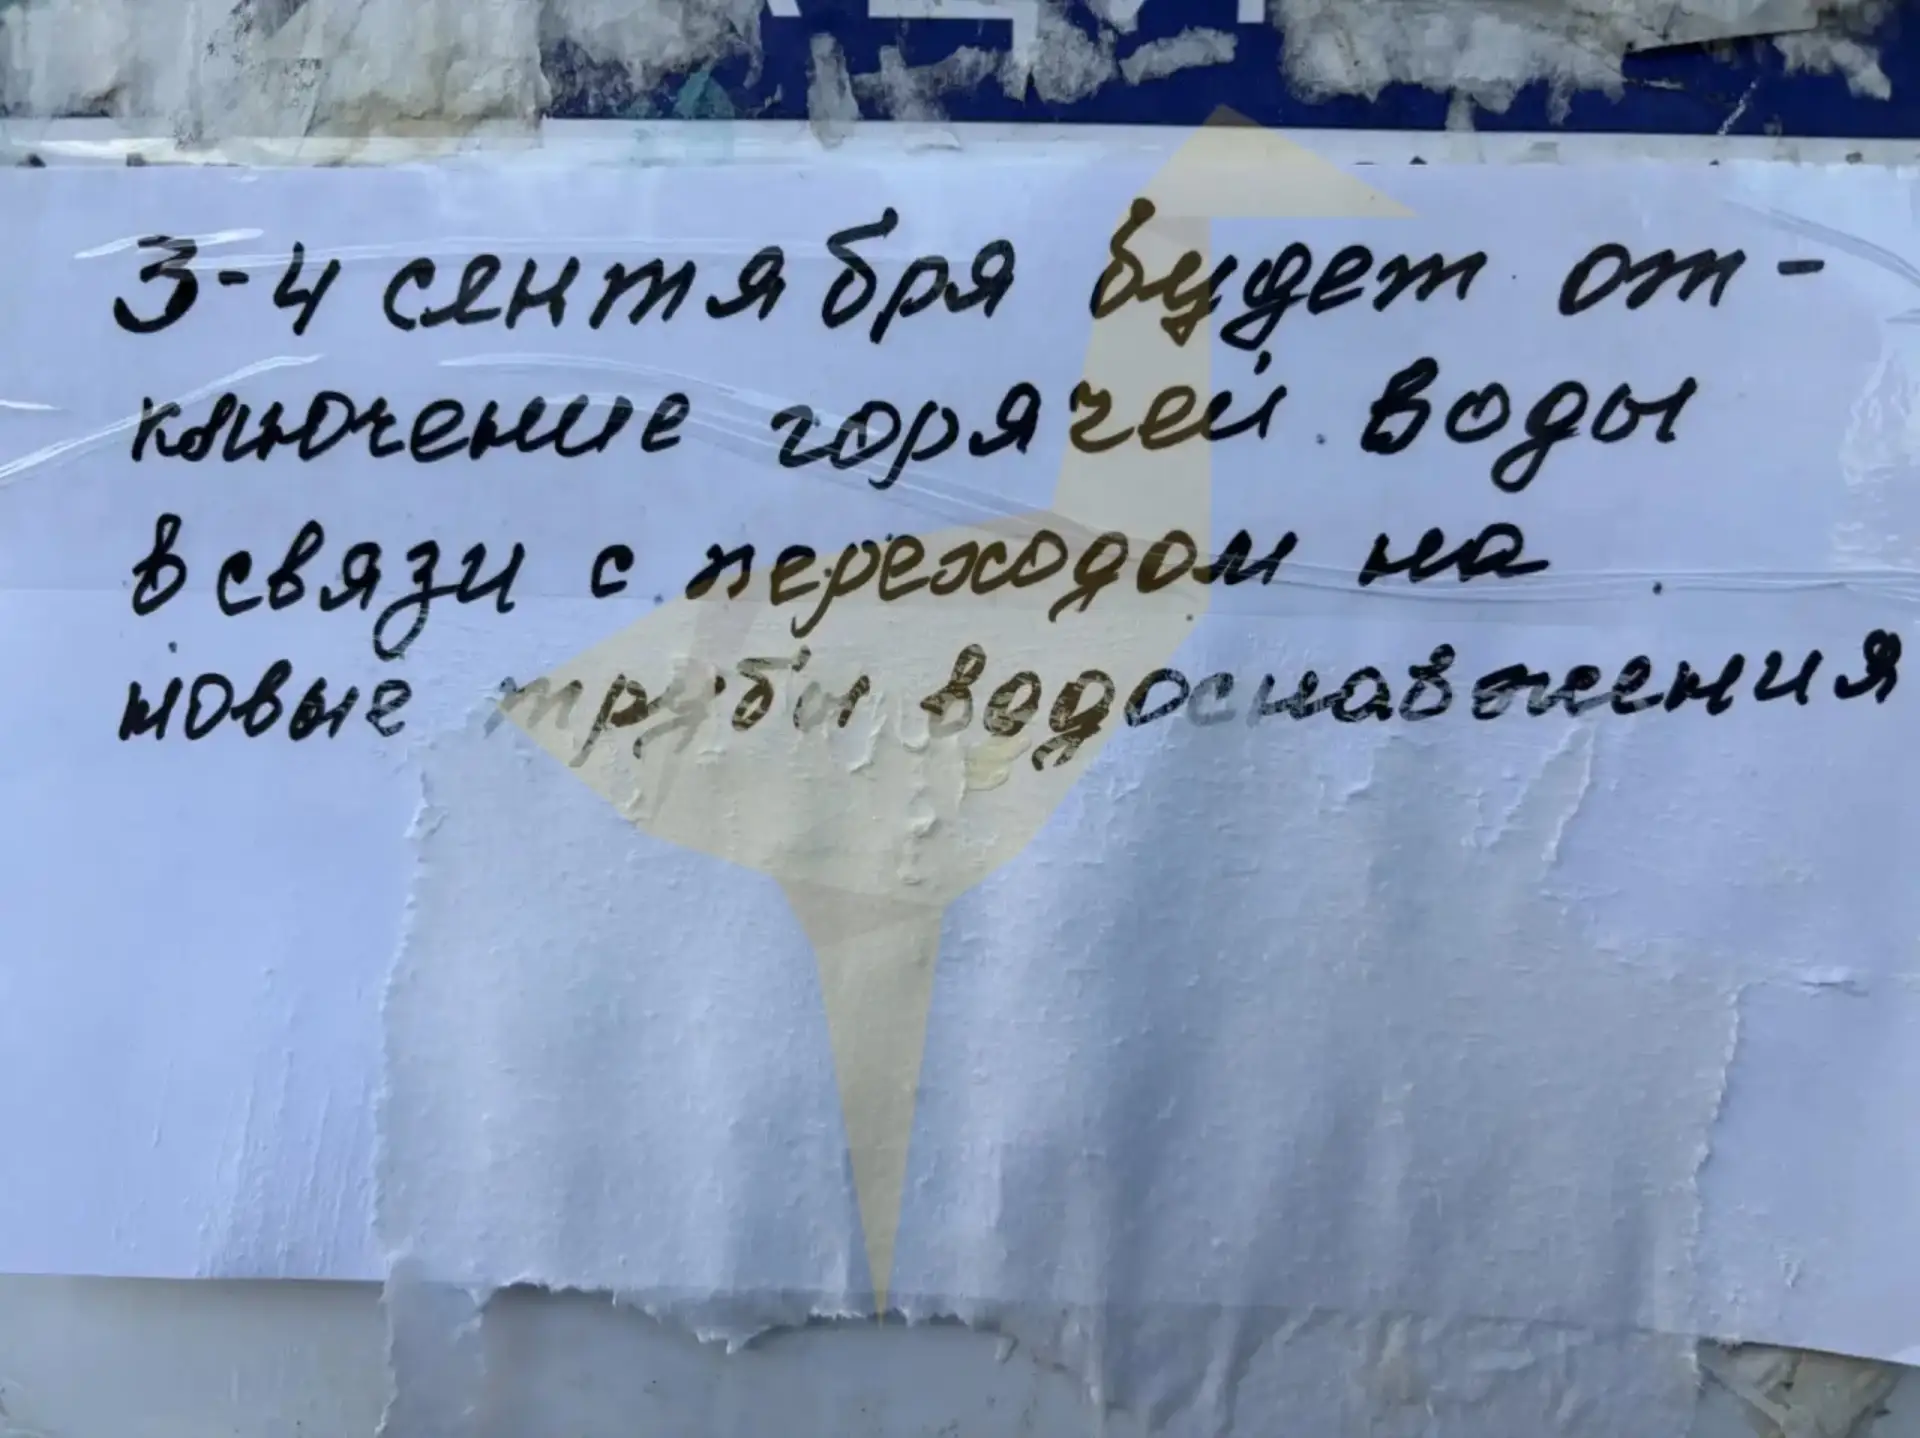 3-4 сентября будет от-
ключение горячей воды
в связи с переходом на
новые трубы водоснабжения